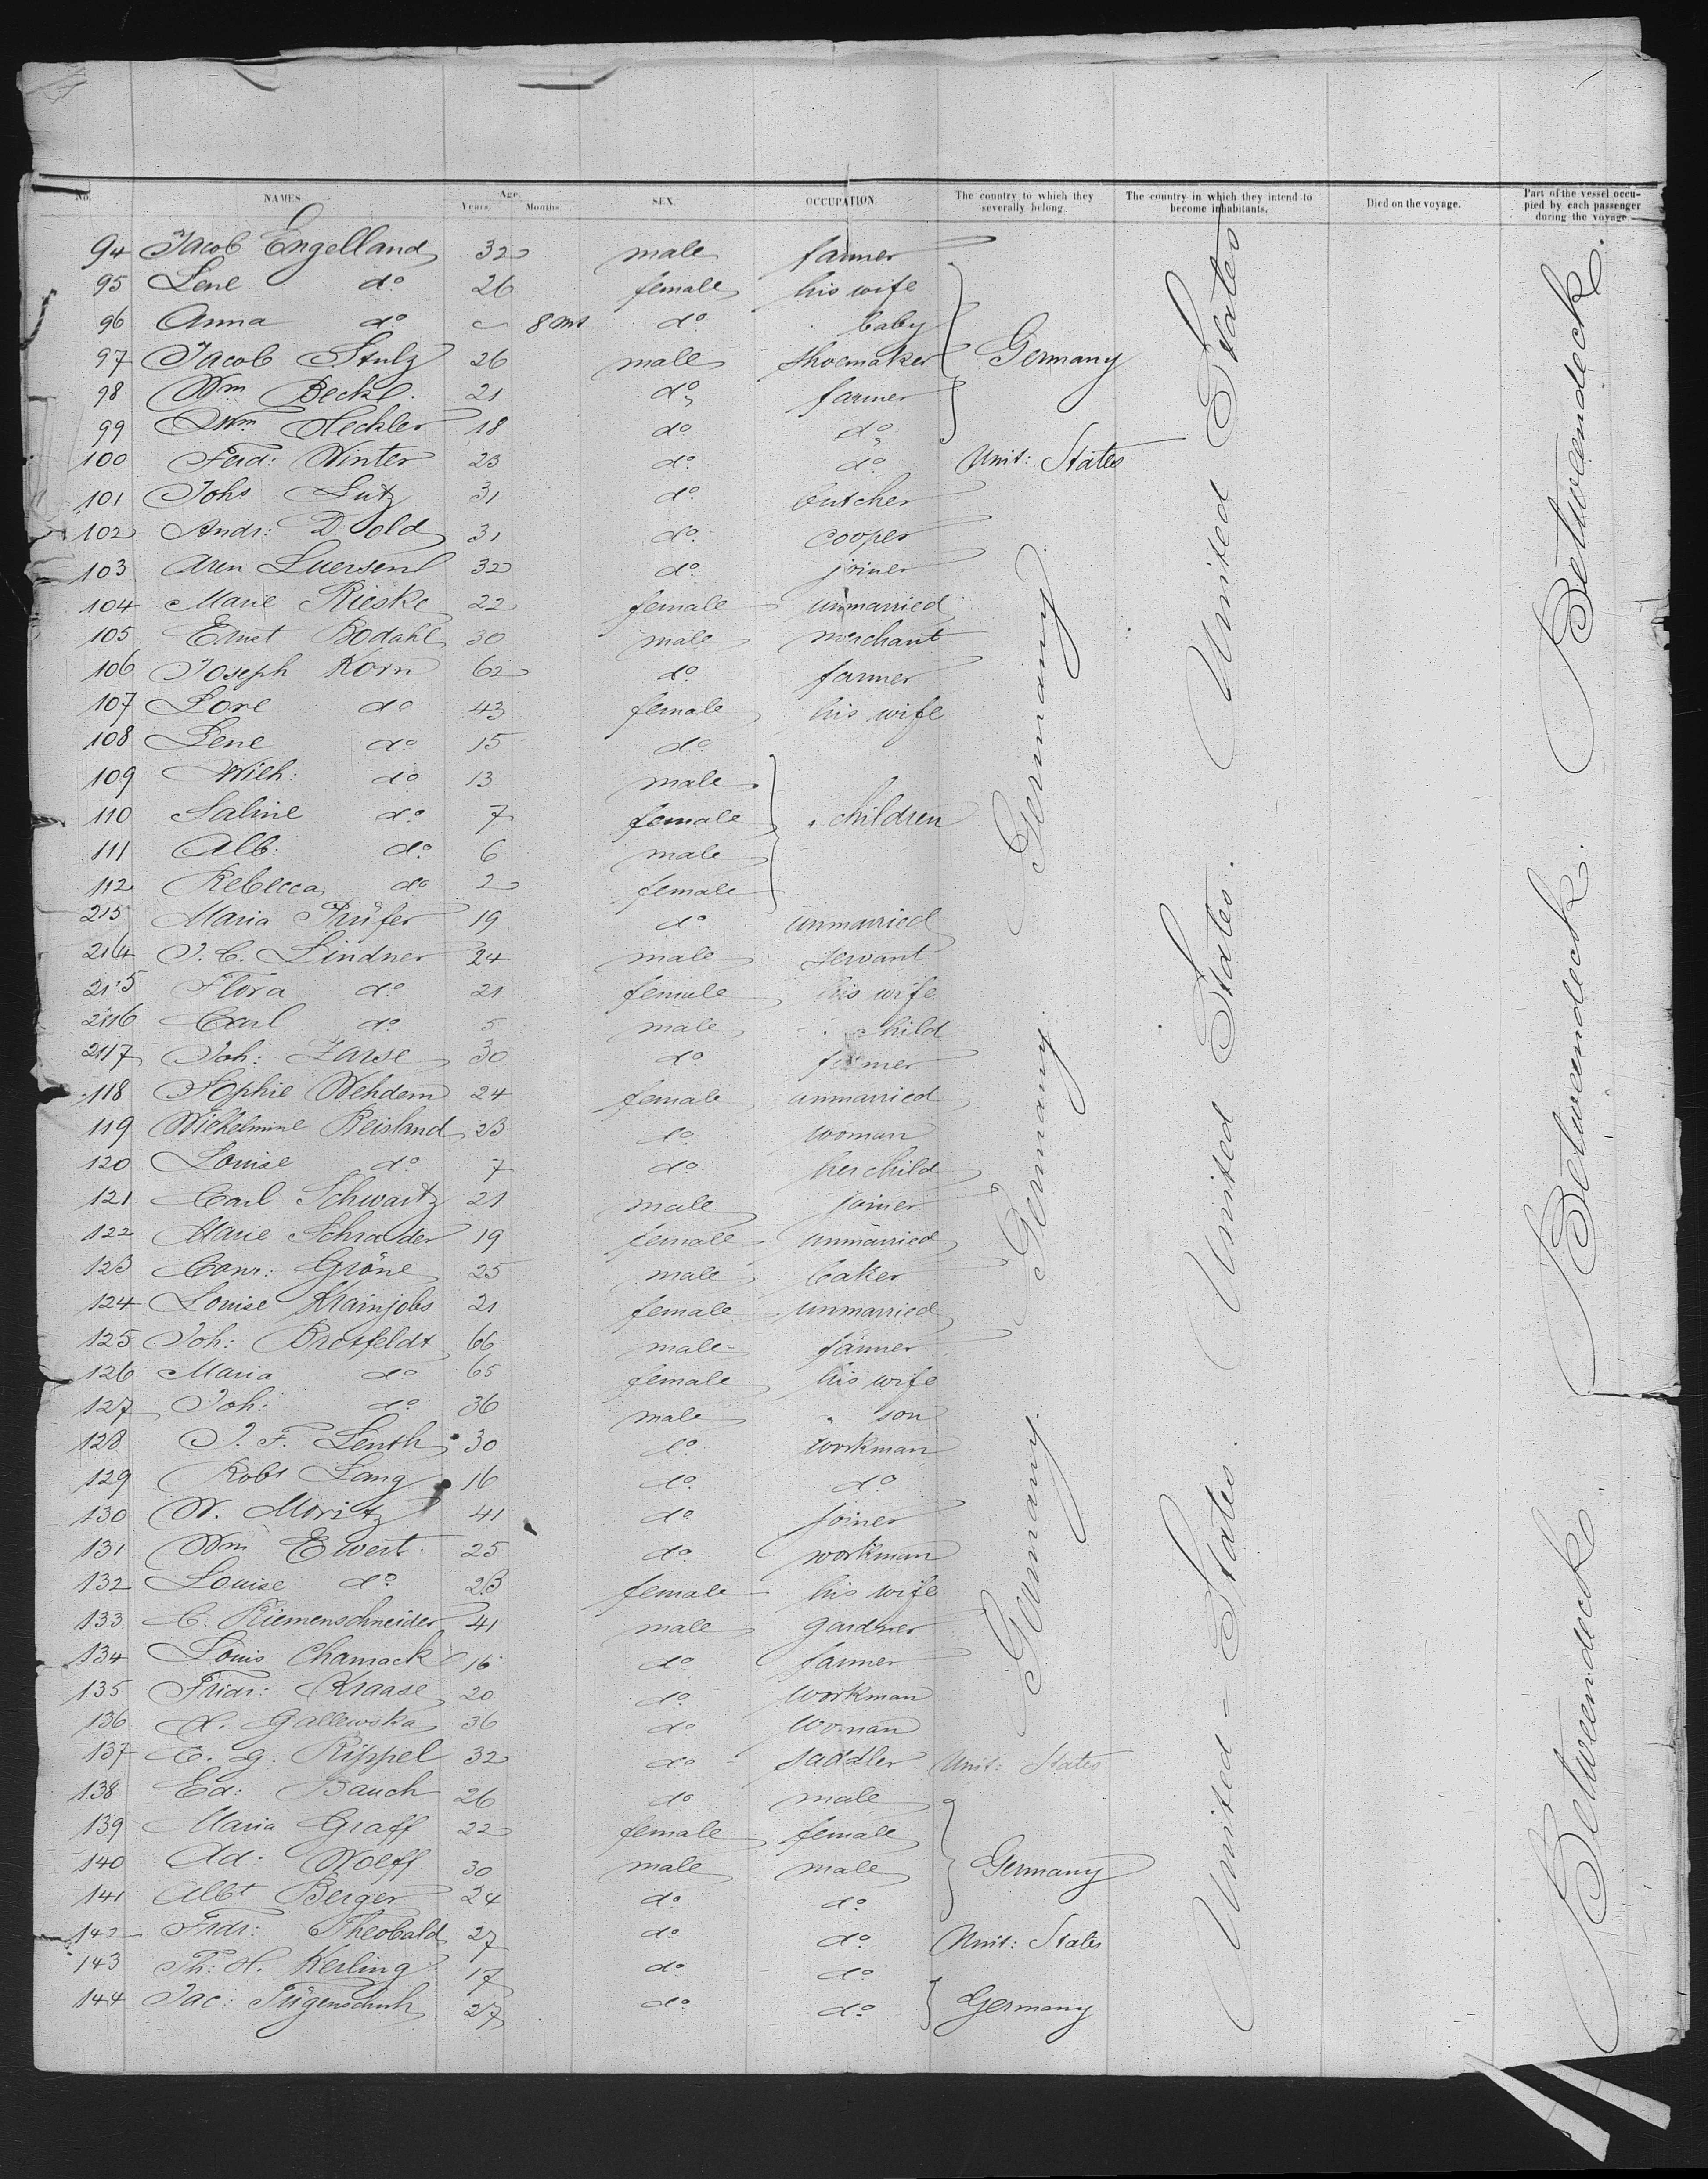 No. NAMES Age. Years. Months. SEX. OCCUPATION. The country to which they severally belong. The country in which they intend to become inhabitants. Died on the voyage. Part of the vessel occupied by each passenger during the voyage.
94 Jacob Engelland 32 male farmer
95 Lene do 26 female his wife
96 Anna do 8 ms do baby
97 Jacob Stulz 26 male shoemaker Germany
98 Wm Beckl. 21 do farmer
99 Wm Heckler 18 do do
100 Ferd: Winter 23 do do Unit: States
101 Johs Lutz 31 do butcher
102 Andr: Dold 31 do cooper
103 Aren Luersen 32 do joiner
104 Marie Rieske 22 female unmarried
105 Ernst Bodahl 30 male merchant
106 Joseph Korn 62 do farmer
107 Lore do 43 female his wife
108 Lene do 15 do
109 Wilh: do 13 male
110 Sabine do 7 female children
111 Alb: do 6 male
112 Rebecca do 2 female
Maria Prüfer 19 do unmarried
J. C. Lindner 24 male servant
Flora do 21 female his wife
Carl do 5 male child
Joh: Zarse 30 do farmer
118 Sophie Wehdem 24 female unmarried
119 Wilhelmine Reisland 23 do woman
120 Louise do 7 do her child
121 Carl Schwartz 21 male joiner
122 Marie Schrader 19 female unmarried
123 Conr: Gröne 25 male baker
124 Louise Krainjobs 21 female unmarried
125 Joh: Brotfeldt 66 male farmer
126 Maria do 65 female his wife
127 Joh: do 36 male " son
128 J. F. Lenth 30 do workman
129 Robt Lang 16 do do
130 W. Moritz 41 do joiner
131 Wm Ewert. 25 do workman
132 Louise do 23 female his wife
133 C. Riemenschneider 41 male gardner
134 Louis Chamack 16 do farmer
135 Fridr: Kraase 20 do workman
136 A. Gallewska 36 do woman
137 C. G. Rippel 32 do saddler Unit: States
138 Ed: Bauch 26 do male
139 Maria Graff 22 female female
140 Ad: Wolff 30 male male Germany
141 Albt Berger 24 do do
142 Frdr: Theobald 27 do do Unit: States
143 Th: H. Kerling 17 do do
144 Jac: Fügenschuh 27 do do Germany
Germany. Germany. Germany.
United States United States. United States.
Betweendeck. Betweendeck. Betweendeck.